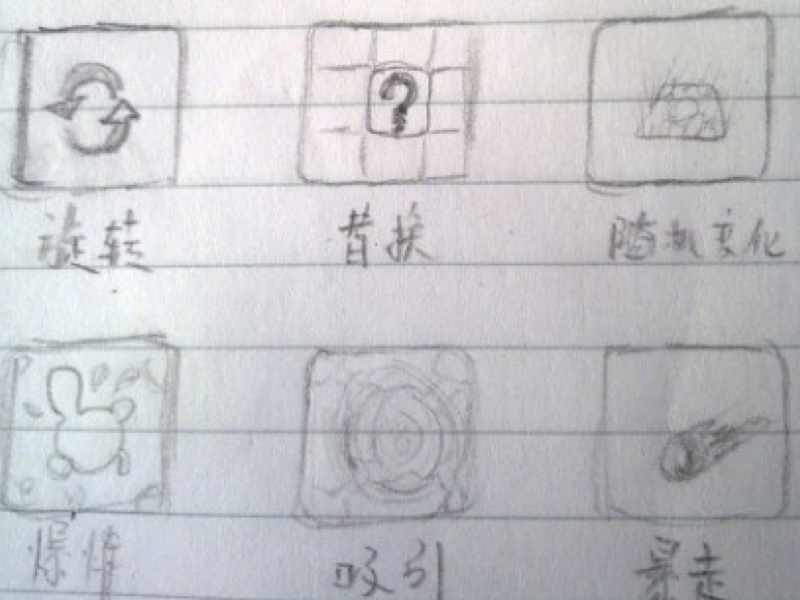 ?
旋转 替换 随机变化
爆炸 吸引 暴走